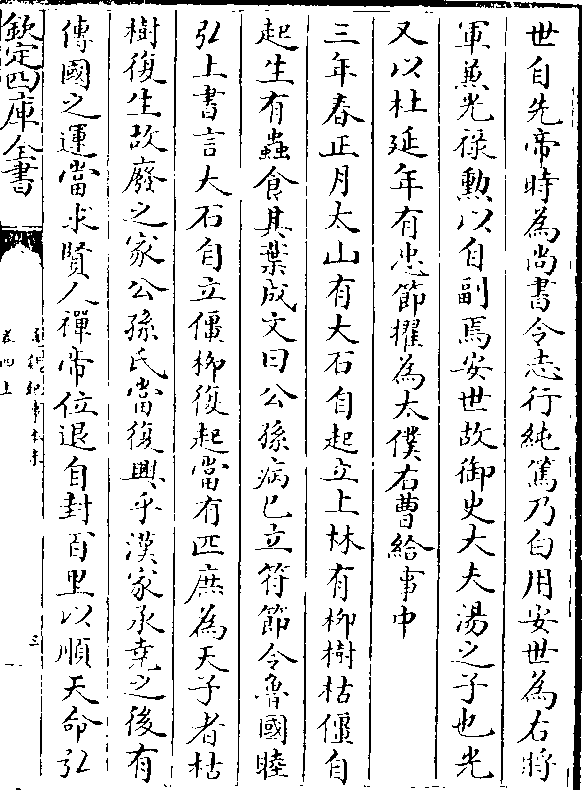 世自先帝時為尚書令志行純篤乃白用安世為右將
軍兼光祿勲以自副焉安世故御史大夫湯之子也光
又以杜延年有忠節擢為太僕右曹給事中
三年春正月太山有大石自起立上林有柳樹枯僵自
起生有蟲食其葉成文曰公孫病已立符節令魯國眭
弘上書言大石自立僵柳復起當有匹庶為天子者枯
樹復生故廢之家公孫氏當復興乎漢家承堯之後有
傳國之運當求賢人禪帝位退自封百里以順天命弘
欽定四庫全書
通鑑紀事本末
卷四上
三